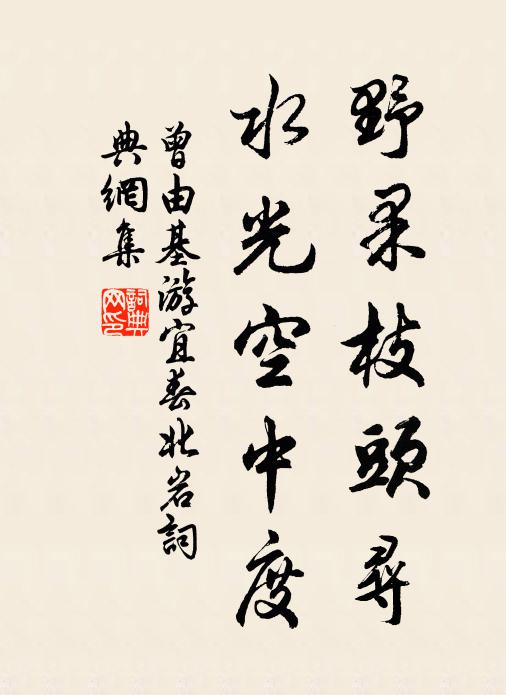 野果枝頭尋
水光空中度
曾由基游宜春北岩詞
典網集
詞典
网印